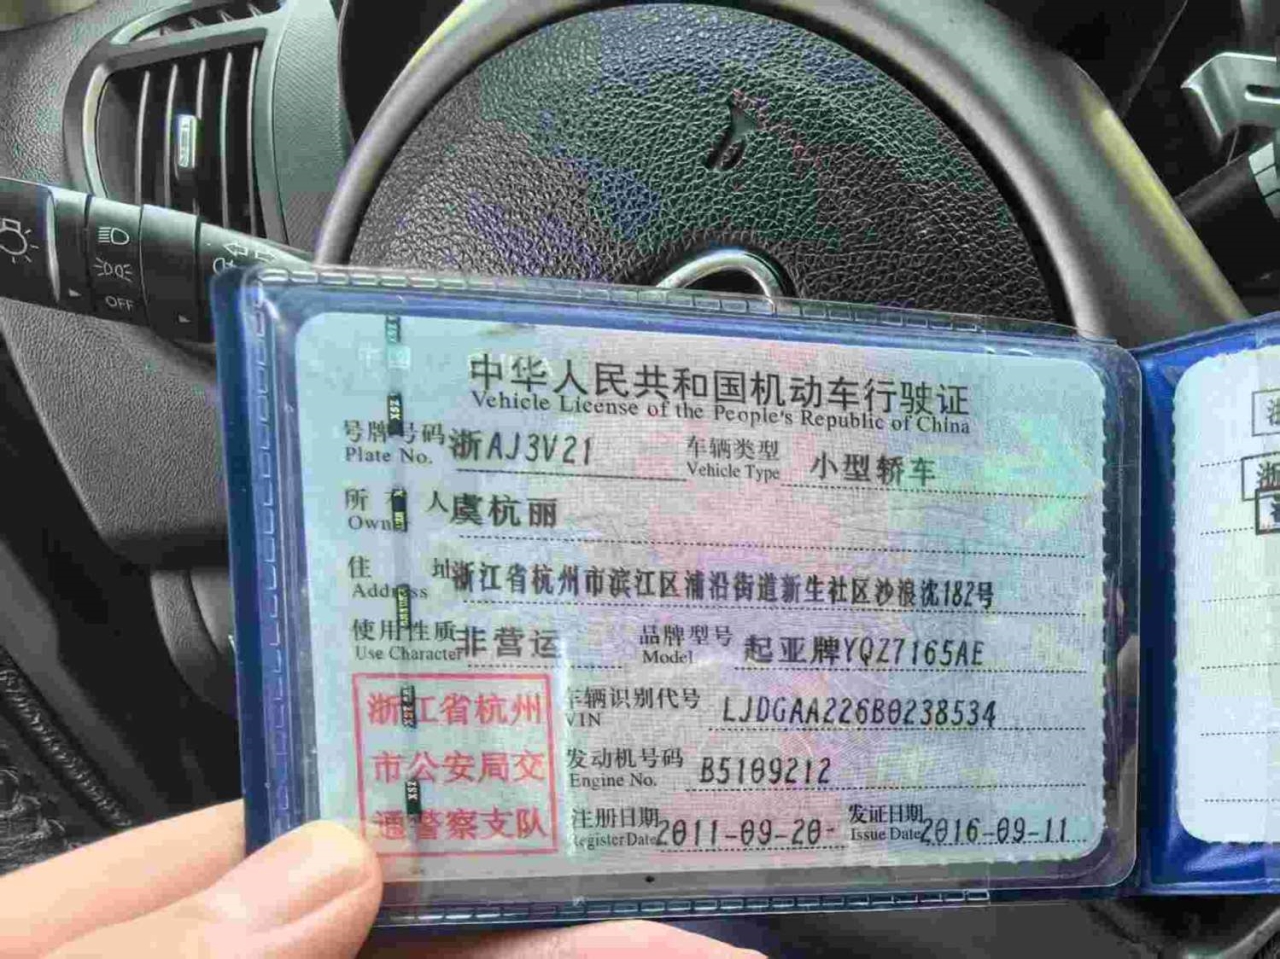 OFF
中华人民共和国机动车行驶证
Vehicle License of the People's Republic of China
号牌号码 浙AJ3V21 车辆类型 小型轿车
Plate No. Vehicle Type
所有人 虞杭丽
Owner
住址 浙江省杭州市滨江区浦沿街道新生社区沙浪沈182号
Address
使用性质 非营运 品牌型号 起亚牌YQZ7165AE
Use Character Model
浙江省杭州
市公安局交
通警察支队
车辆识别代号 LJDGAA226B0238534
VIN
发动机号码 B5109212
Engine No.
注册日期 2011-09-20 发证日期 2016-09-11
Register Date Issue Date